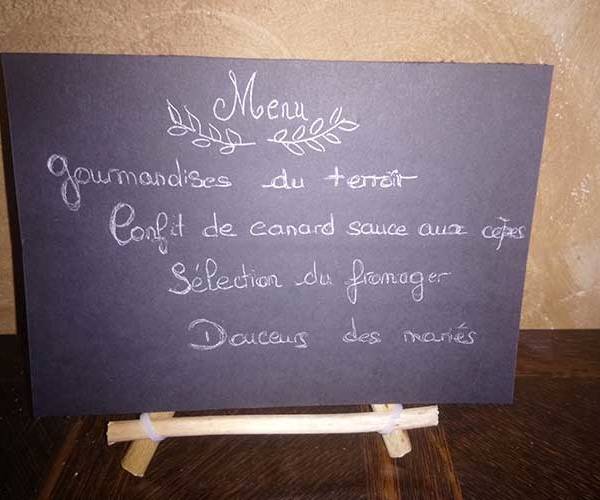 Menu
Gourmandises du terroir
Confit de canard sauce aux cèpes
Sélection du fromager
Douceurs des mariés